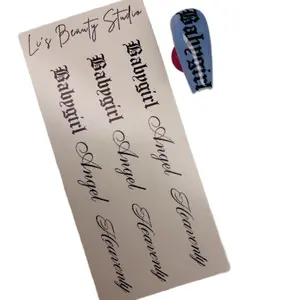 Lu's Beauty Studio
Babygirl Babygirl Babygirl
Angel Angel Angel
Heavenly Heavenly Heavenly
Babygirl